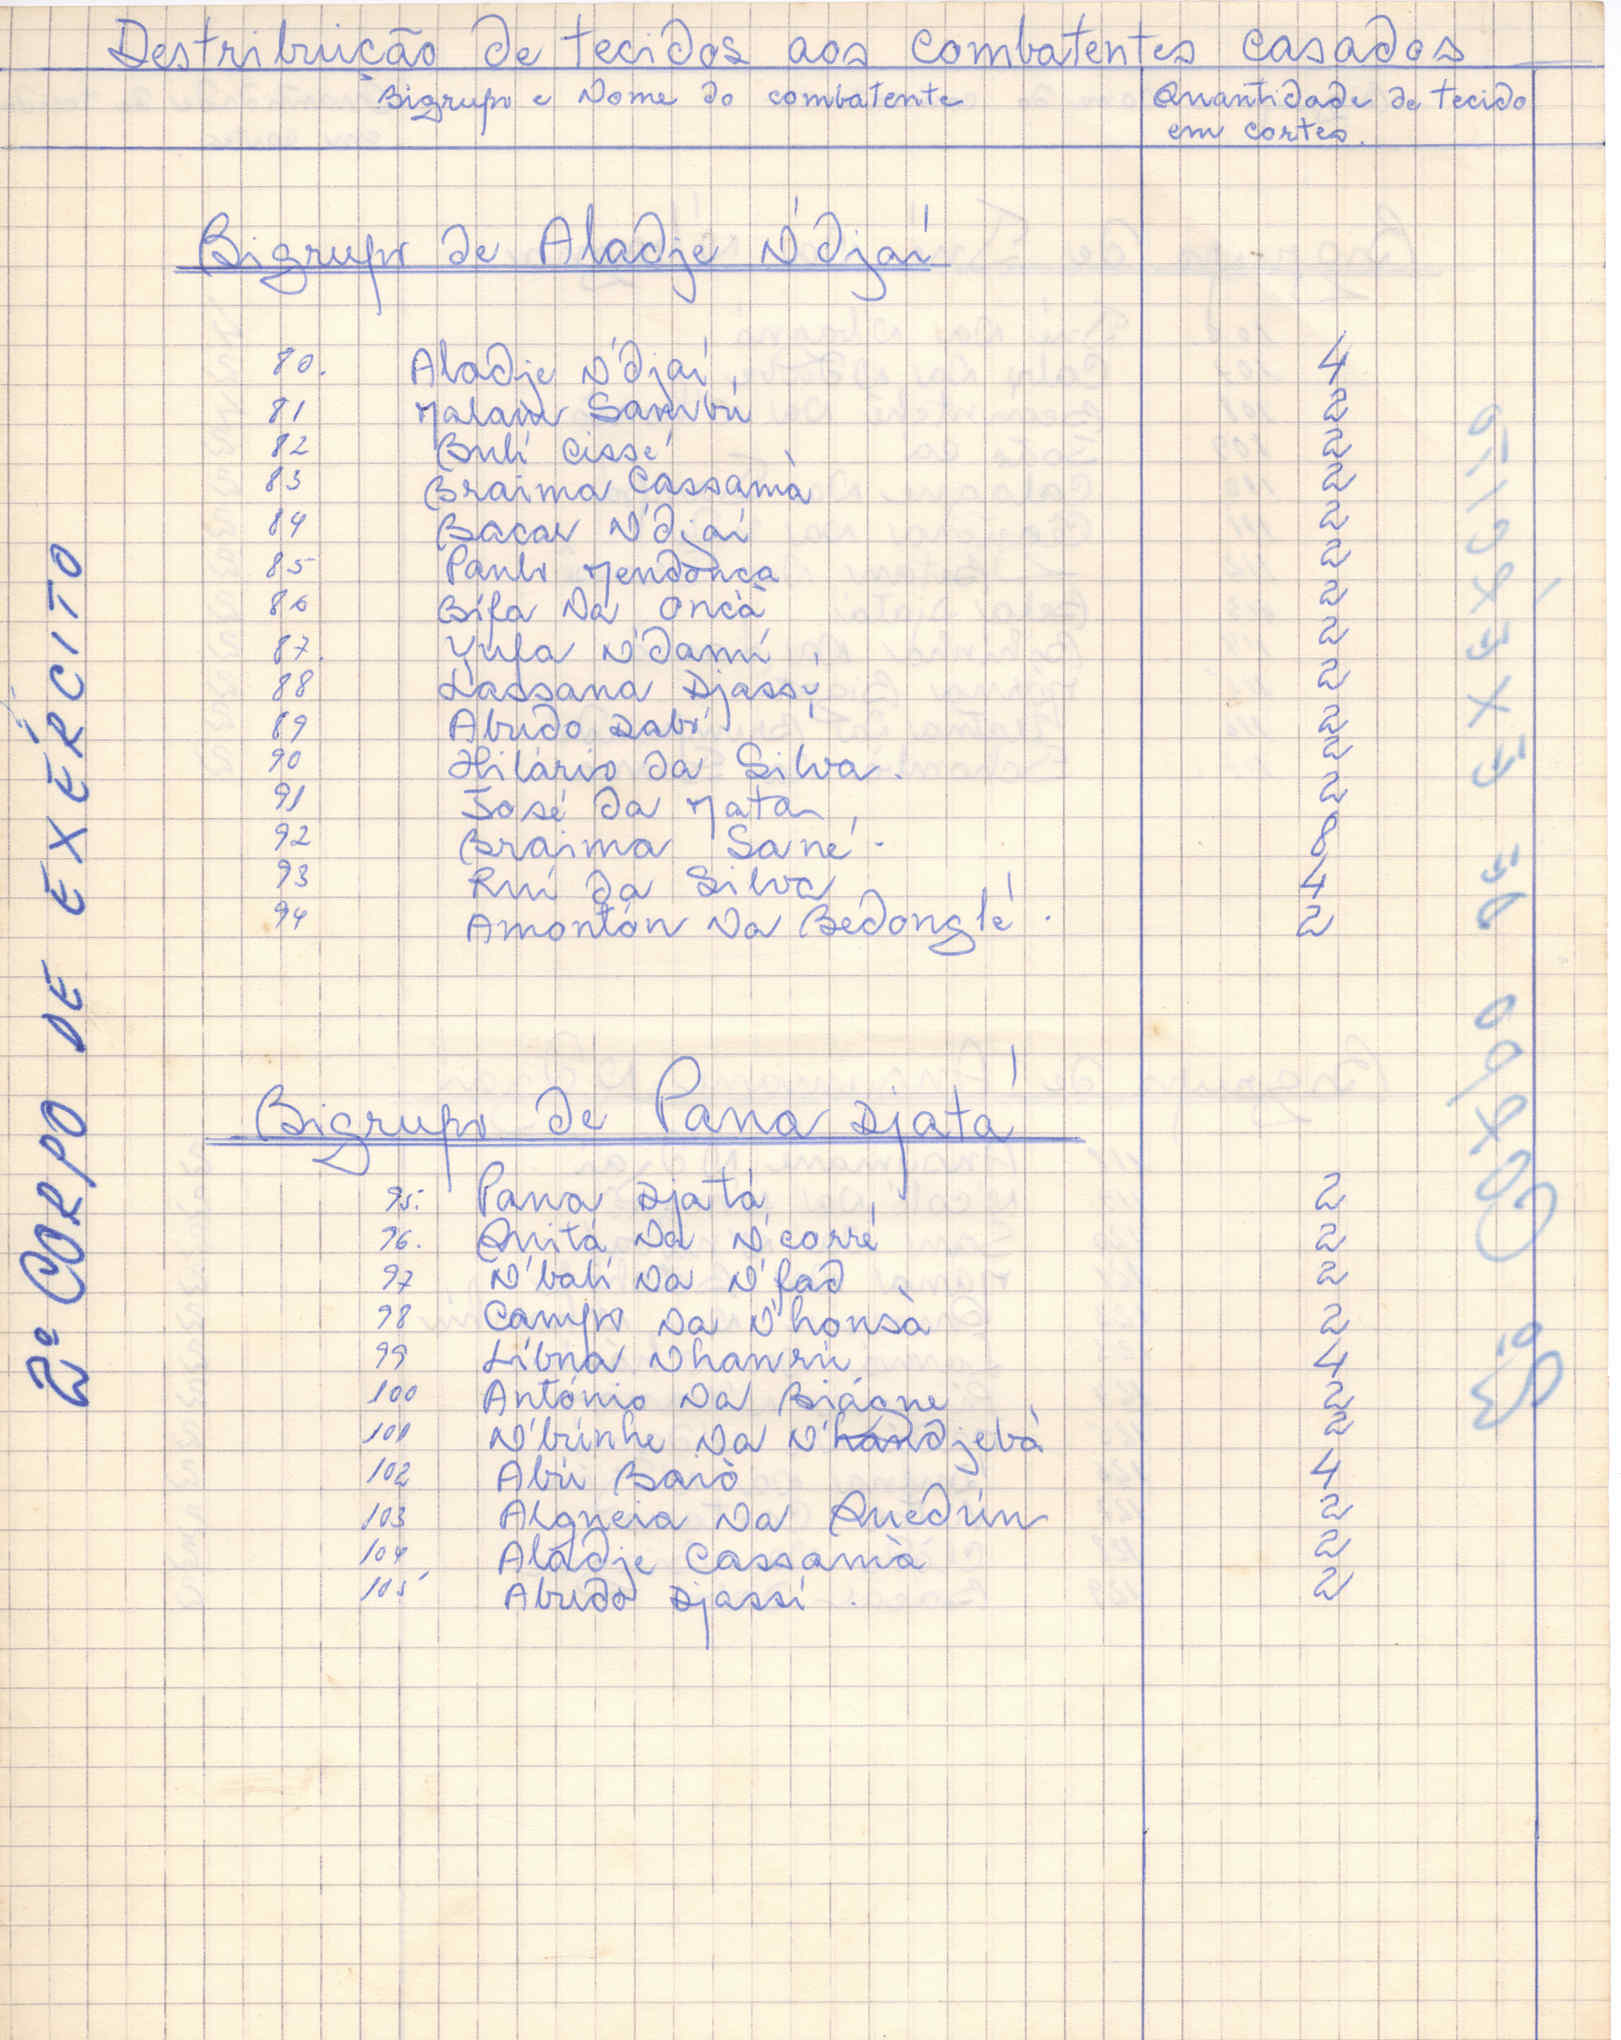 Destribuição de tecidos aos combatentes casados
Bigrupo e Nome do combatente Quantidade de tecido
em cortes.
2º CORPO DE EXÉRCITO
Bigrupo de Aladje N'djaí
80. Aladje N'djaí 4
81 Malam Sambú 2
82 Bulí Cissé 2
83 Braima Cassamà 2
84 Bacar N'djaí 2
85 Paulo Mendonça 2
86 Bifa Na Oncà 2
87. Yufa N'damí 2
88 Lassana Djassí 2
89 Abudo Dabó 2
90 Hilário da Silva. 2
91 José da Mata 2
92 Braima Sané. 8
93 Rui da Silva 4
94 Amontón Na Bedonglé. 2
Bigrupo de Pana Djatá
95. Pana Djatá 2
96. Quitá Na N'corré 2
97 N'balí Na N'fad 2
98 Campo Na N'honsà 2
99 Libna Nhanrú 4
100 António Na Biágne 2
101 N'brinhe Na N'handjebà 2
102 Abú Baiò 4
103 Algueia Na Quedún 2
104 Aladje Cassamà 2
105 Abudo Djassí. 2